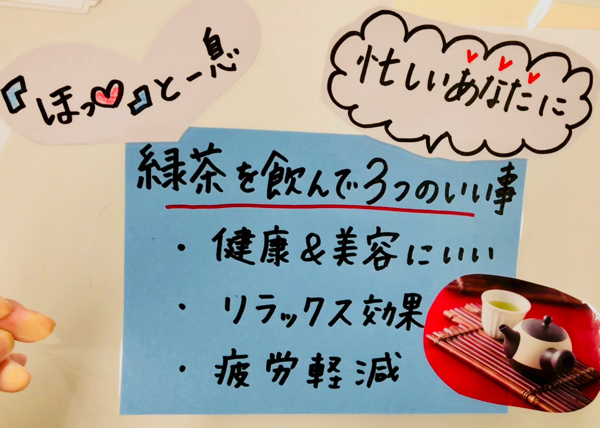 『ほっ♡』と一息
忙しいあなたに
緑茶を飲んで3つのいい事
・健康&美容にいい
・リラックス効果
・疲労軽減